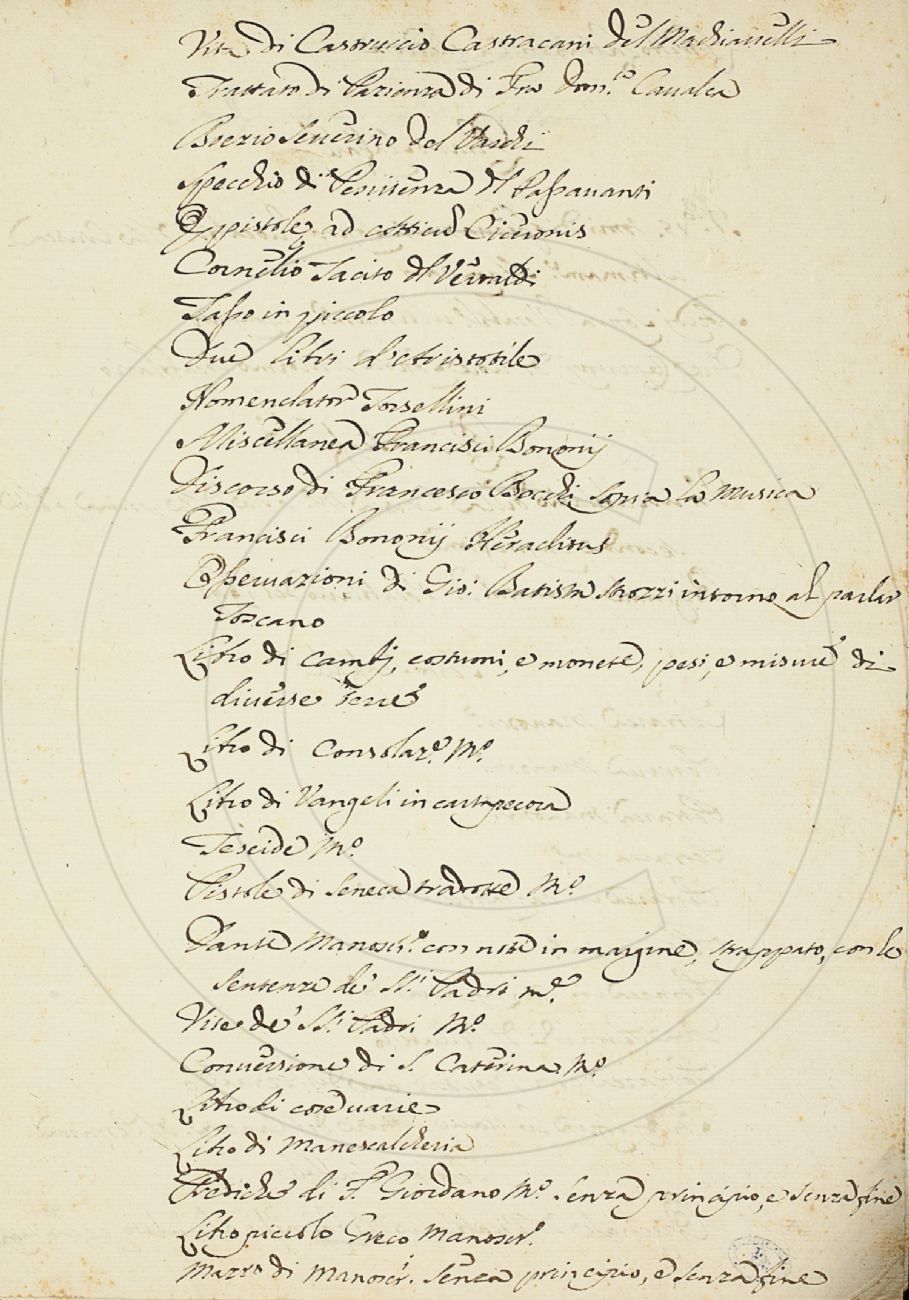 Vita di Castruccio Castracani del Machiavelli
Trattato di Pazienza di Fra Dom.co Cavalca
Boezio Severino del Varchi
Specchio di Penitenza dl Passavanti
Eppistole ad Atticũ Ciceronis
Cornelio Tacito dl
Tasso in piccolo
Due libri d'Aristotile
Nomenclator Torsellini
Miscellanea Francisci Bononij
Discorso di Francesco Bocchi sopra la Musica
Francisci Bononij Heraclitus
Osservazioni di Gio: Batista Strozzi intorno al parlar
Toscano
Libro di Cambj, costumi, e monete, pesi, e misure di
diverse terre
Libro di Consolaz.e M.o
Libro di Vangeli in cartapecora
Teseide M.o
Pistole di Seneca tradotte M.o
Dante Manoscr.o con note in margine, strappato, con le
Sentenze de' S.ti Padri m.o
Vite de' S.ti Padri M.o
Conversione di S. Caterina M.o
Libro di cose varie
Libro di Manescalcheria
Prediche di F. Giordano M.o senza principio, e senza fine
Libro piccolo Greco Manoscr.o
Mazzo di Manoscr.i senza principio, e senza fine